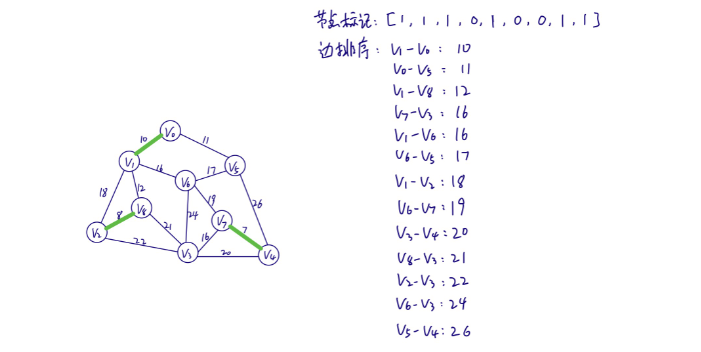 节点标记: [1, 1, 1, 0, 1, 0, 0, 1, 1]
边排序: V1-V0: 10
V0-V5: 11
V1-V8: 12
V7-V3: 16
V1-V6: 16
V6-V5: 17
V1-V2: 18
V6-V7: 19
V3-V4: 20
V8-V3: 21
V2-V3: 22
V6-V3: 24
V5-V4: 26
V0
10
11
V1
16
17
V5
V6
18
12
19
26
V8
8
24
V7
21
7
V2
16
22
V3
20
V4